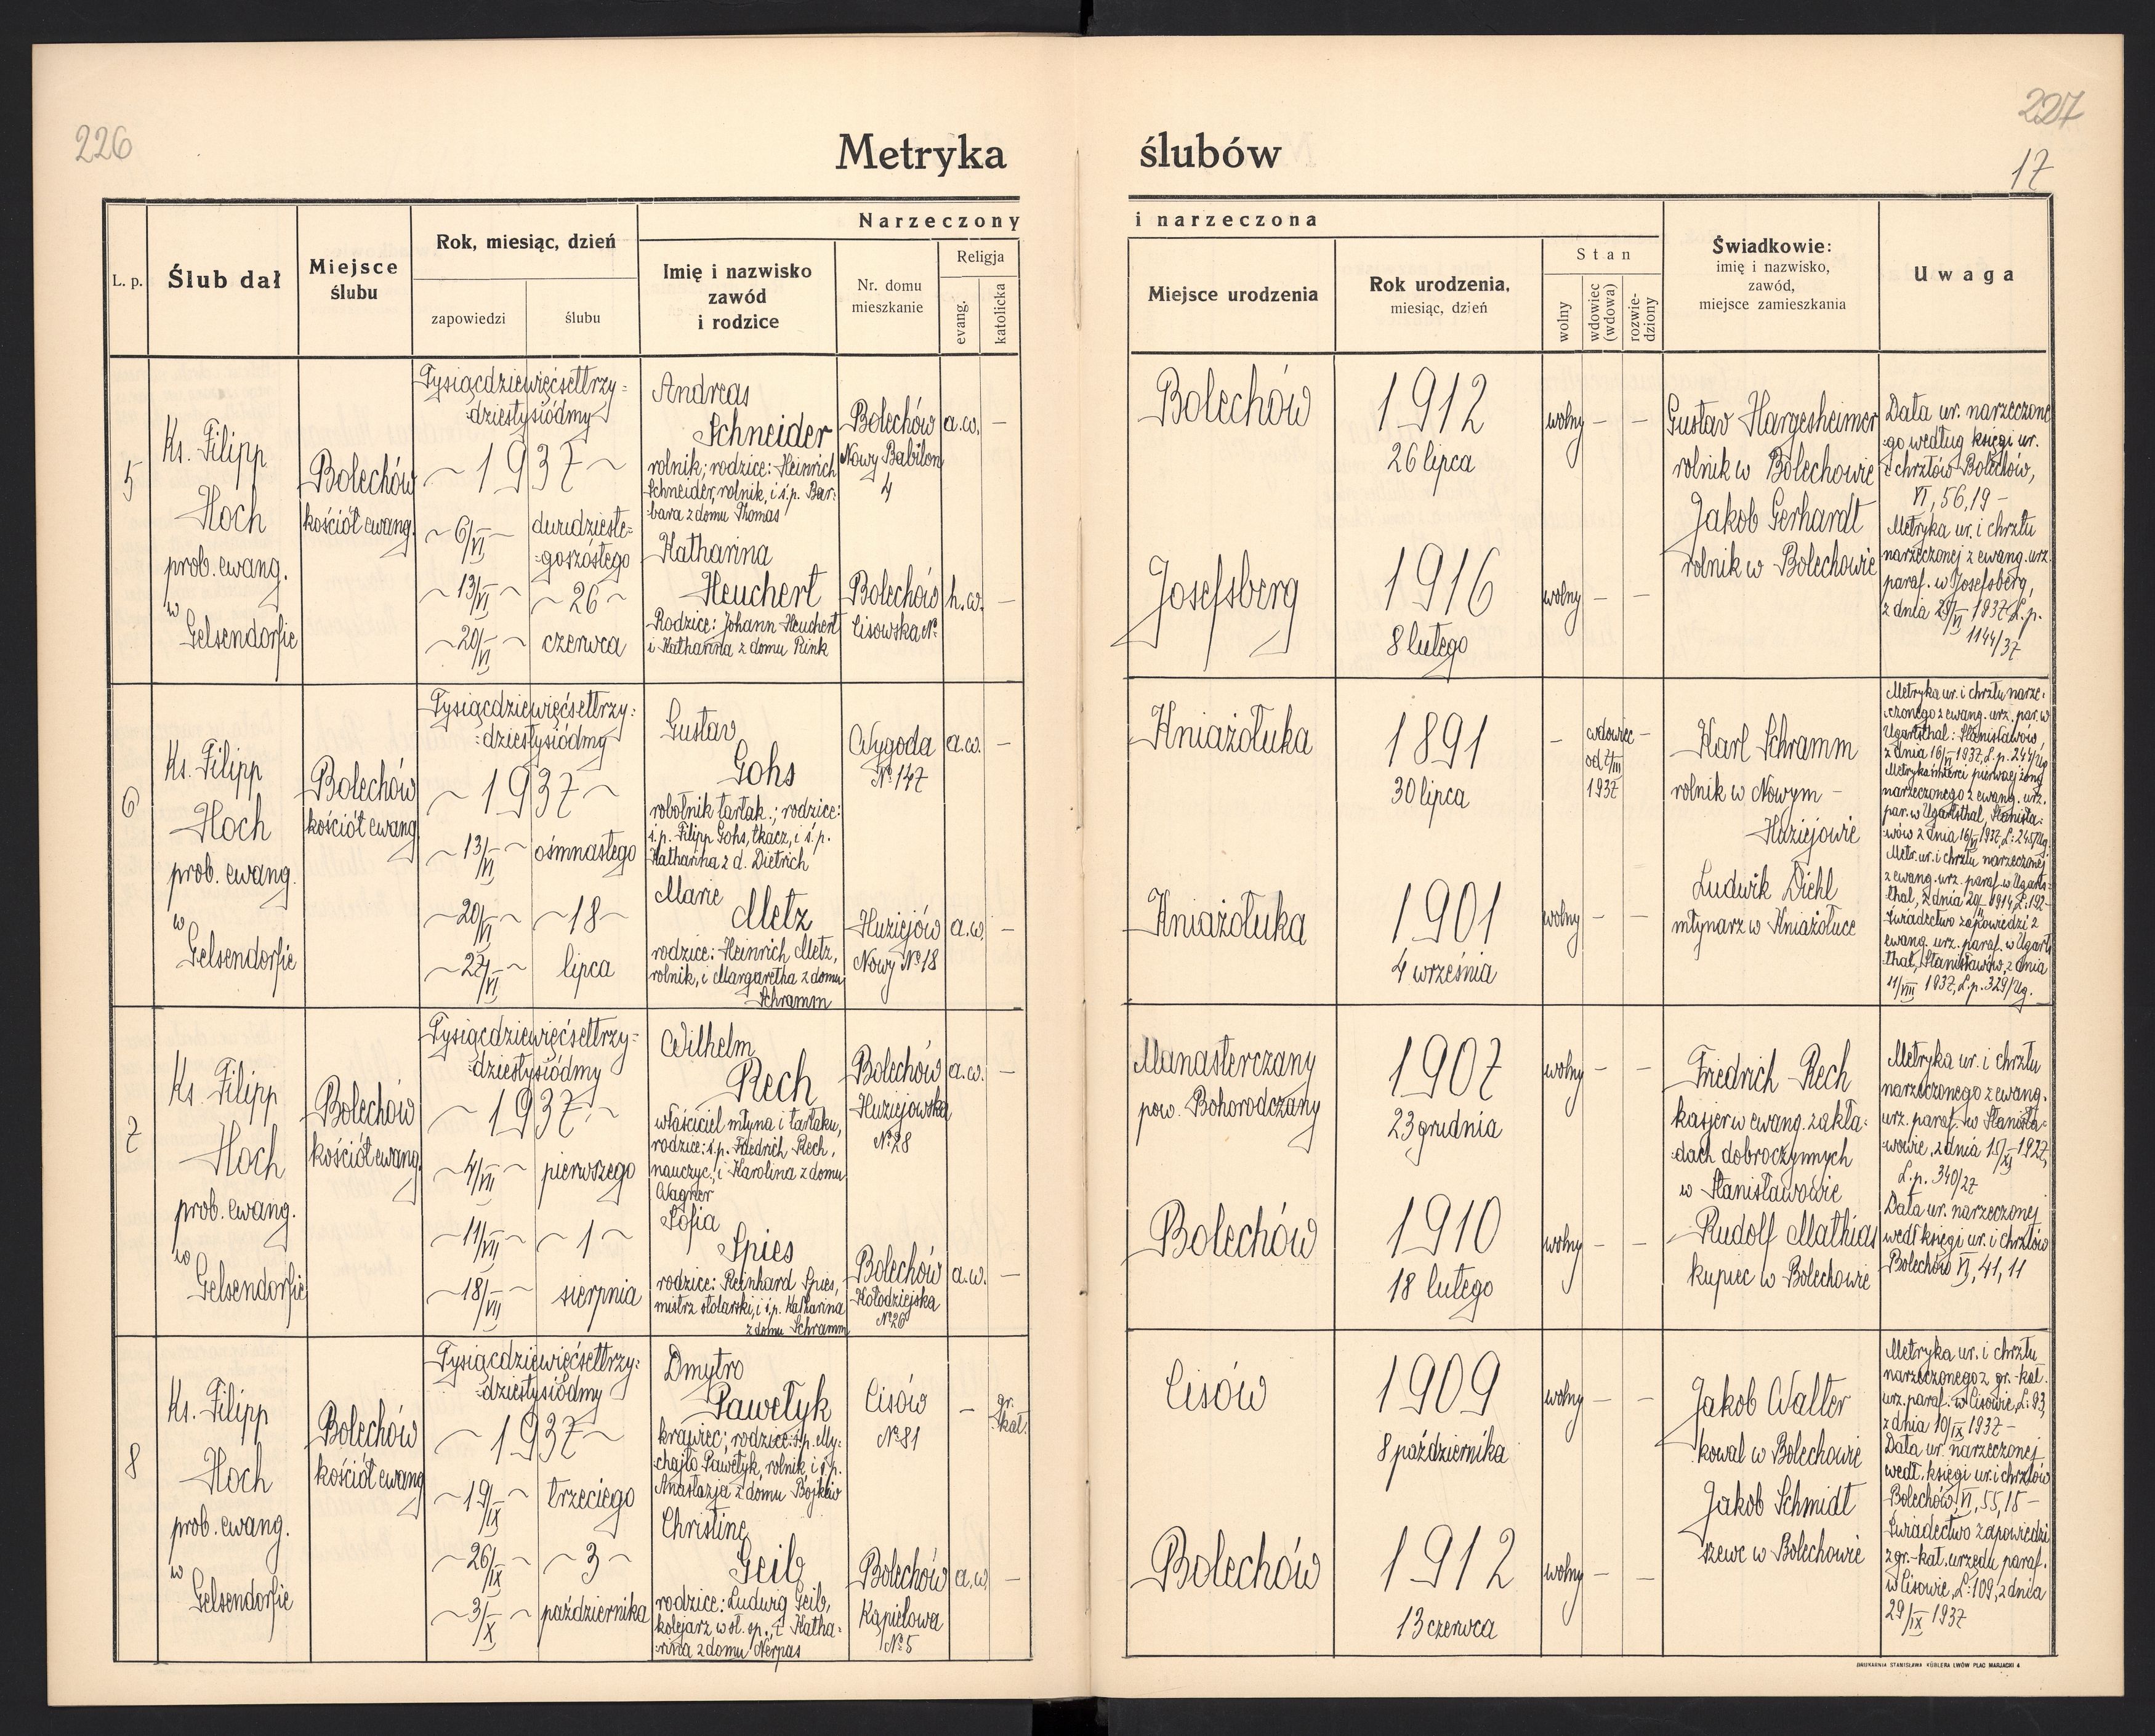 226
227
17
Metryka ślubów
Narzeczony i narzeczona
L. p.
Ślub dał
Miejsce
ślubu
Rok, miesiąc, dzień
zapowiedzi
ślubu
Imię i nazwisko
zawód
i rodzice
Nr. domu
mieszkanie
Religja
evang.
katolicka
Miejsce urodzenia
Rok urodzenia,
miesiąc, dzień
Stan
wolny
wdowiec
(wdowa)
rozwie-
dziony
Świadkowie:
imię i nazwisko,
zawód,
miejsce zamieszkania
Uwaga
5
Ks. Filipp
Hoch
prob. ewang.
w
Gelsendorfie
Bolechów
kościół ewang.
Tysiącdziewięćsettrzy=
=dziestysiódmy
~ 1937 ~
~ 6/VI ~
~ 13/VI ~
~ 20/VI ~
dwudzieste=
=goszóstego
~ 26 ~
czerwca
Andreas
Schneider
rolnik; rodzice: Heinrich
Schneider, rolnik, i ś.p. Bar=
=bara z domu Thomas
Katharina
Heuchert
Rodzice: Johann Heuchert
i Katharina z domu Rink
Bolechów
Nowy Babilon
4
a.w.
–
Bolechów
Lisowska №
h.w.
–
Bolechów
1912
26 lipca
wolny – –
Josefsberg
1916
8 lutego
wolny – –
Gustav Hargesheimer
rolnik w Bolechowie
Jakob Gerhardt
rolnik w Bolechowie
Data ur. narzeczone
=go według księgi ur.
i chrztów Bolechów,
VI, 56, 19 –
Metryka ur. i chrztu
narzeczonej z ewang. urz.
paraf. w Josefsberg,
z dnia 29/VI 1937 L.p.
1144/37
6
Ks. Filipp
Hoch
prob. ewang.
w
Gelsendorfie
Bolechów
kościół ewang.
Tysiącdziewięćsettrzy=
=dziestysiódmy
~ 1937 ~
~ 13/VI ~
~ 20/VI ~
~ 27/VI ~
ośmnastego
~ 18 ~
lipca
Gustav
Gohs
robotnik tartak.; rodzice:
ś.p. Filipp Gohs, tkacz, i ś.p.
Katharina z d. Dietrich
Marie
Metz
rodzice: Heinrich Metz,
rolnik, i Margaretha z domu
Schramm
Wygoda
№ 147
a.w.
–
Huziejów
Nowy № 18
a.w.
–
Kniażołuka
1891
30 lipca
– wdowiec –
od 7/III
1937
Kniażołuka
1901
4 września
wolny – –
Karl Schramm
rolnik w Nowym –
Huziejowie
Ludwik Diehl
młynarz w Kniażołuce
Metryka ur. i chrztu narze=
=czonego z ewang. urz. par. w
Ugartsthal: Stanisławów,
z dnia 16/VI 1937, L.p. 244/Ug
Metryka śmierci pierwszej żony
narzeczonego z ewang. urz.
par. w Ugartsthal, Stanisła=
=wów z dnia 16/VI 1937, L: 245/Ug.
Metr. ur. i chrztu narzeczonej
z ewang. urz. paraf. w Ugarts=
=thal, z dnia 1914, L: 192 –
Świadectwo zapowiedzi z
ewang. urz. paraf. w Ugarts
=thal, Stanisławów, z dnia
11/VIII 1937, L.p. 329/Ug.
7
Ks. Filipp
Hoch
prob. ewang.
w
Gelsendorfie
Bolechów
kościół ewang.
Tysiącdziewięćsettrzy=
=dziestysiódmy
~ 1937 ~
~ 4/VII ~
~ 11/VII ~
~ 18/VII ~
pierwszego
~ 1 ~
sierpnia
Wilhelm
Rech
właściciel młyna i tartaku,
rodzice: ś.p. Friedrich Rech,
nauczyc., i Karolina z domu
Wagner
Sofia
Spies
rodzice: Reinhard Spies,
mistrz stolarski, i ś.p. Katharina
z domu Schramm
Bolechów
Huziejowska
№ 28
a.w.
–
Bolechów
Kołodziejska
№ 26
a.w.
–
Manasterczany
pow. Bohorodczany
1907
23 grudnia
wolny – –
Bolechów
1910
18 lutego
wolny – –
Friedrich Rech
kasjer w ewang. zakła=
=dach dobroczynnych
w Stanisławowie
Rudolf Mathias
kupiec w Bolechowie
Metryka ur. i chrztu
narzeczonego z ewang.
urz. paraf. w Stanisła=
=wowie, z dnia 15/XI 1927,
L.p. 340/27
Data ur. narzeczonej
wedł księgi ur. i chrztów
Bolechów VI, 41, 11
8
Ks. Filipp
Hoch
prob. ewang.
w
Gelsendorfie
Bolechów
kościół ewang
Tysiącdziewięćsettrzy=
=dziestysiódmy
~ 1937 ~
~ 19/IX ~
~ 26/IX ~
~ 3/X ~
trzeciego
~ 3 ~
października
Dmytro
Pawełyk
krawiec; rodzice: ś.p. My=
=chajło Pawełyk, rolnik i ś.p.
Anastazja z domu Bojkiw
Christine
Geib
rodzice: Ludwig Geib,
kolejarz w st. sp., i Katha=
=rina z domu Nerpas
Cisów
№ 81
–
gr.
kat.
Bolechów
Kąpielowa
№ 5
a.w.
–
Cisów
1909
8 października
wolny – –
Bolechów
1912
13 czerwca
wolny – –
Jakob Walter
kowal w Bolechowie
Jakob Schmidt
szewc w Bolechowie
Metryka ur. i chrztu
narzeczonego z gr.-kat.
urz. paraf. w Cisowie, L: 93,
z dnia 10/IX 1937 –
Data ur. narzeczonej
wedł. księgi ur. i chrztów
Bolechów, VI, 55, 15 –
Świadectwo zapowiedzi
z gr.-kat. urzędu paraf.
w Cisowie, L: 109, z dnia
29/IX 1937
DRUKARNIA STANISŁAWA KÜBLERA LWÓW PLAC MARJACKI 4